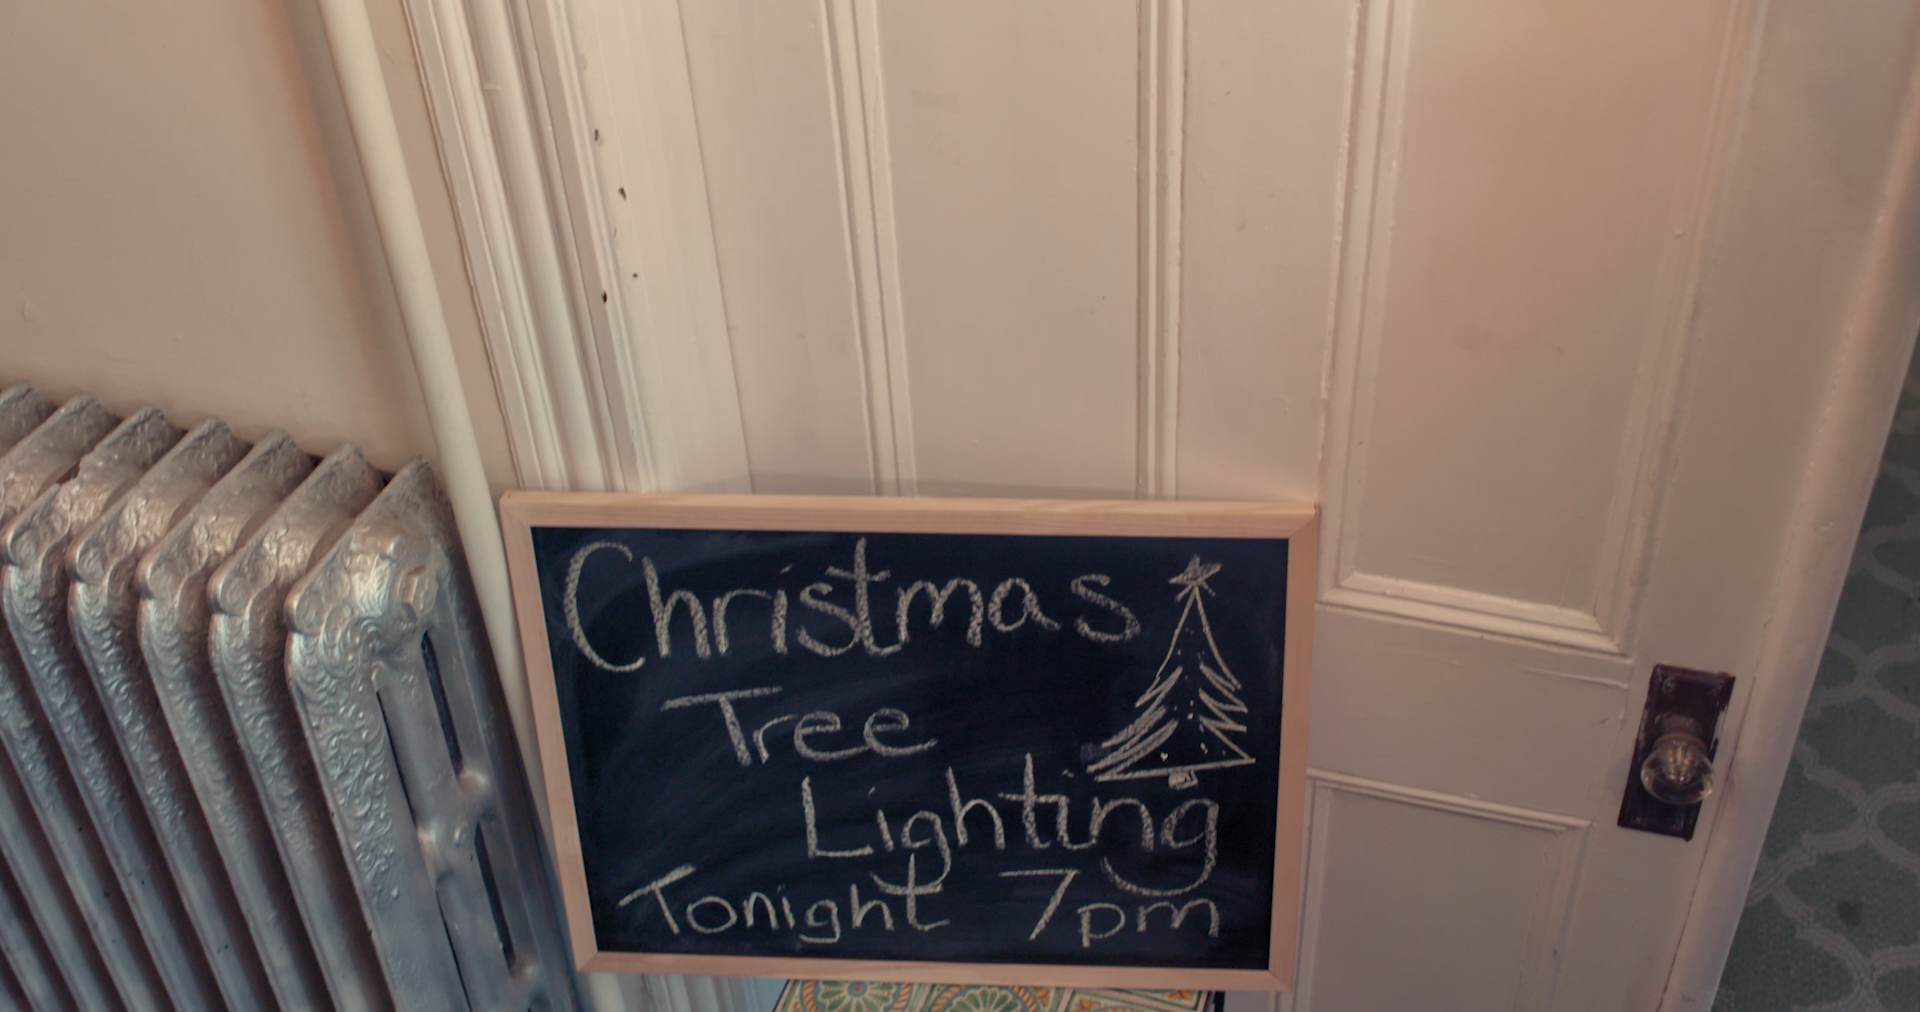 Christmas
Tree
Lighting
Tonight 7pm